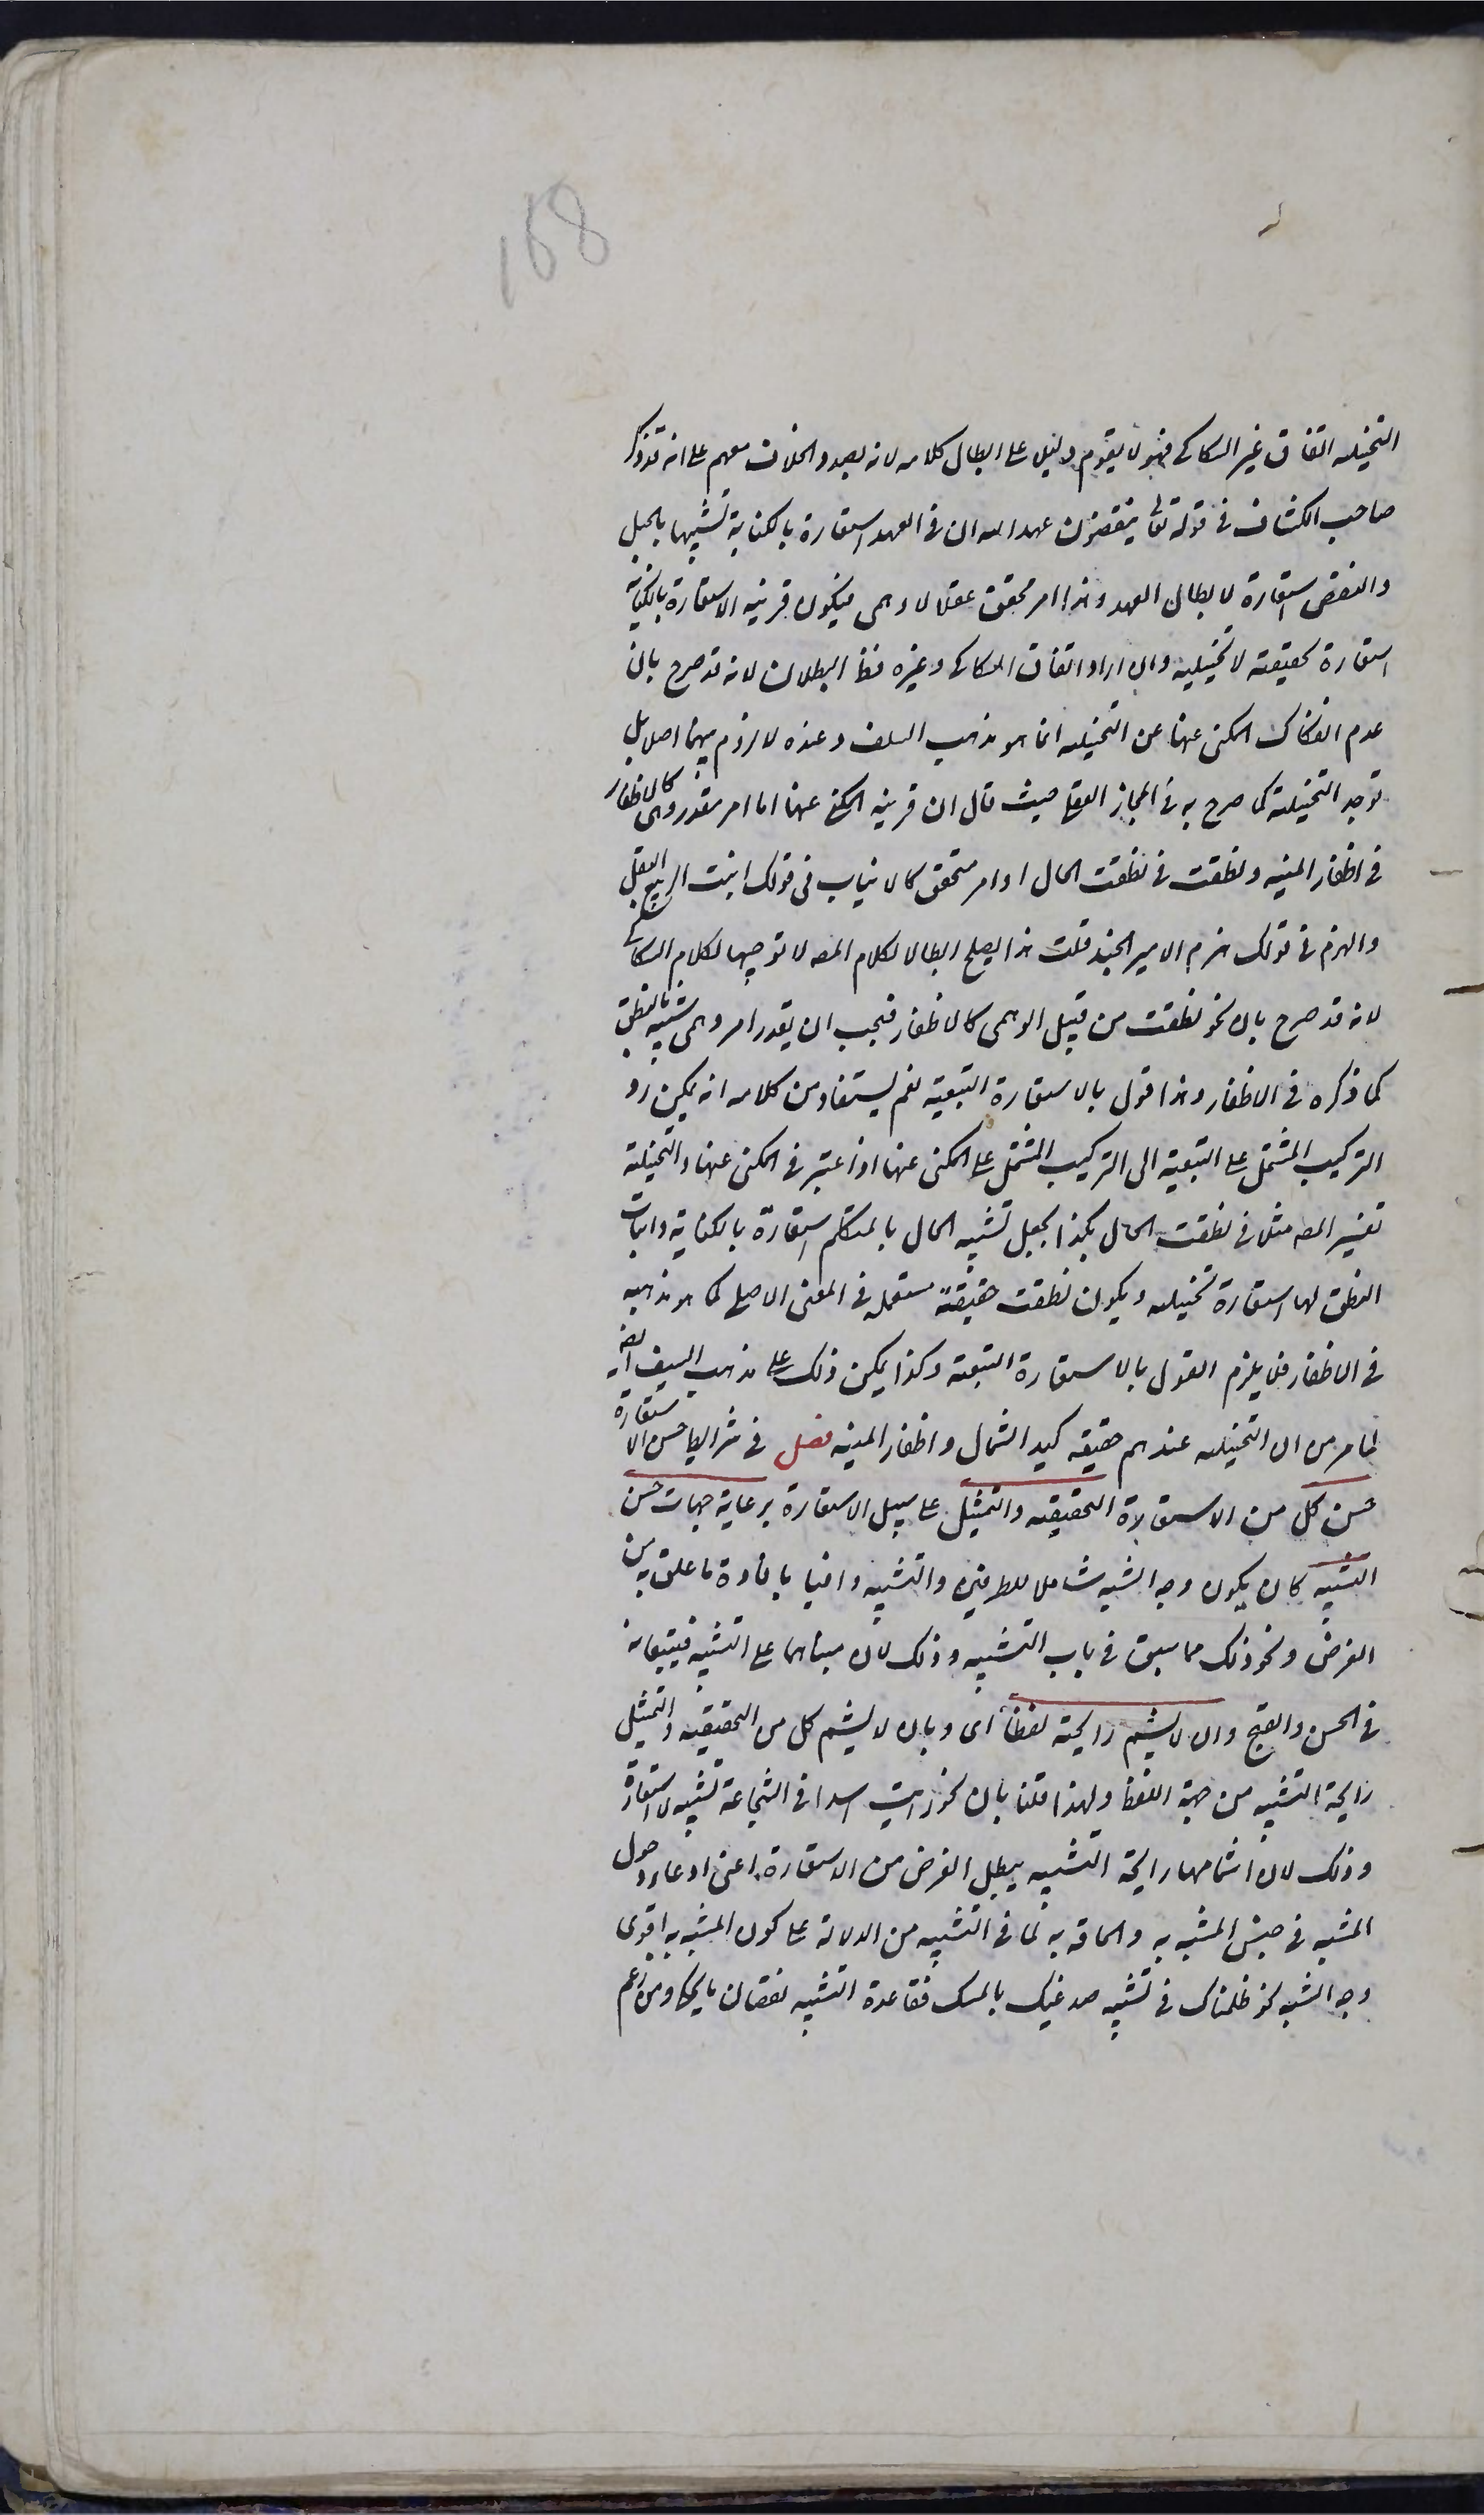 168
التخييلية اتفاق غير السكاكي فهو لا يقوم دليل على ابطال كلامه لانه بصدد الخلاف معهم على انه قد ذكر
صاحب الكشاف في قوله تعالى ينقضون عهد الله ان في العهد استعارة بالكناية تشبيها بالحبل
والنقض استعارة لابطال العهد وهذا امر محقق عقلا لا وهمى فيكون قرينة الاستعارة بالكناية
استعارة تحقيقية لا تخييلية وان اراد اتفاق السكاكي وغيره فظ البطلان لانه قد صرح بان
عدم انفكاك المكنى عنها عن التخييلية انما هو مذهب السلف وعنده لا لزوم بينهما اصلا بل
توجد التخييلية كما صرح به في المجاز العقلي حيث قال ان قرينة المكنى عنها اما امر مقدر وهمى كالاظفار
في اظفار المنية ونطقت في نطقت الحال او امر متحقق كالانبات في قولك انبت الربيع البقل
والهزم في قولك هزم الامير الجند قلت هذا يصلح ابطالا لكلام المص لا توجيها لكلام السكاكي
لانه قد صرح بان نحو نطقت من قبيل الوهمى كالاظفار فيجب ان يقدر امر وهمى شبيه بالنطق
كما ذكره في الاظفار وهذا قول بالاستعارة التبعية نعم يستفاد من كلامه انه يمكن رد
التركيب المشتمل على التبعية الى التركيب المشتمل على المكنى عنها اذا اعتبر في المكنى عنها والتخييلية
تفسير المص مثلا في نطقت الحال بكذا يجعل تشبيه الحال بالمتكلم استعارة بالكناية واثبات
النطق لها استعارة تخييلية ويكون نطقت حقيقة مستعملة في المعنى الاصلي كما هو مذهبه
في الاظفار فلا يلزم القول بالاستعارة التبعية وكذا يمكن ذلك على مذهب السلف ايضا
لما مر من ان التخييلية عندهم حقيقة كيد الشمال واظفار المنية فصل في شرائط حسن الاستعارة
حسن كل من الاستعارة التحقيقية والتمثيل على سبيل الاستعارة برعاية جهات حسن
التشبيه كان يكون وجه الشبه شاملا للطرفين والتشبيه وافيا بافادة ما علق به من
الغرض ونحو ذلك مما سبق في باب التشبيه وذلك لان مبناهما على التشبيه فيتبعانه
في الحسن والقبح وان لا يشم رايحته لفظا اى وبان لا يشم كل من التحقيقية والتمثيل
رايحة التشبيه من جهة اللفظ ولهذا قلنا بان نحو رايت اسدا في الشجاعة تشبيه لا استعارة
وذلك لان اشمامها رايحة التشبيه يبطل الغرض من الاستعارة اعنى ادعاء دخول
المشبه في جنس المشبه به والحاقه به لما في التشبيه من الدلالة على كون المشبه به اقوى
وجه الشبه نحو ظلمناك في تشبيه صدغيك بالمسك فقاعدة التشبيه نقصان ما يحكى ومن زعم